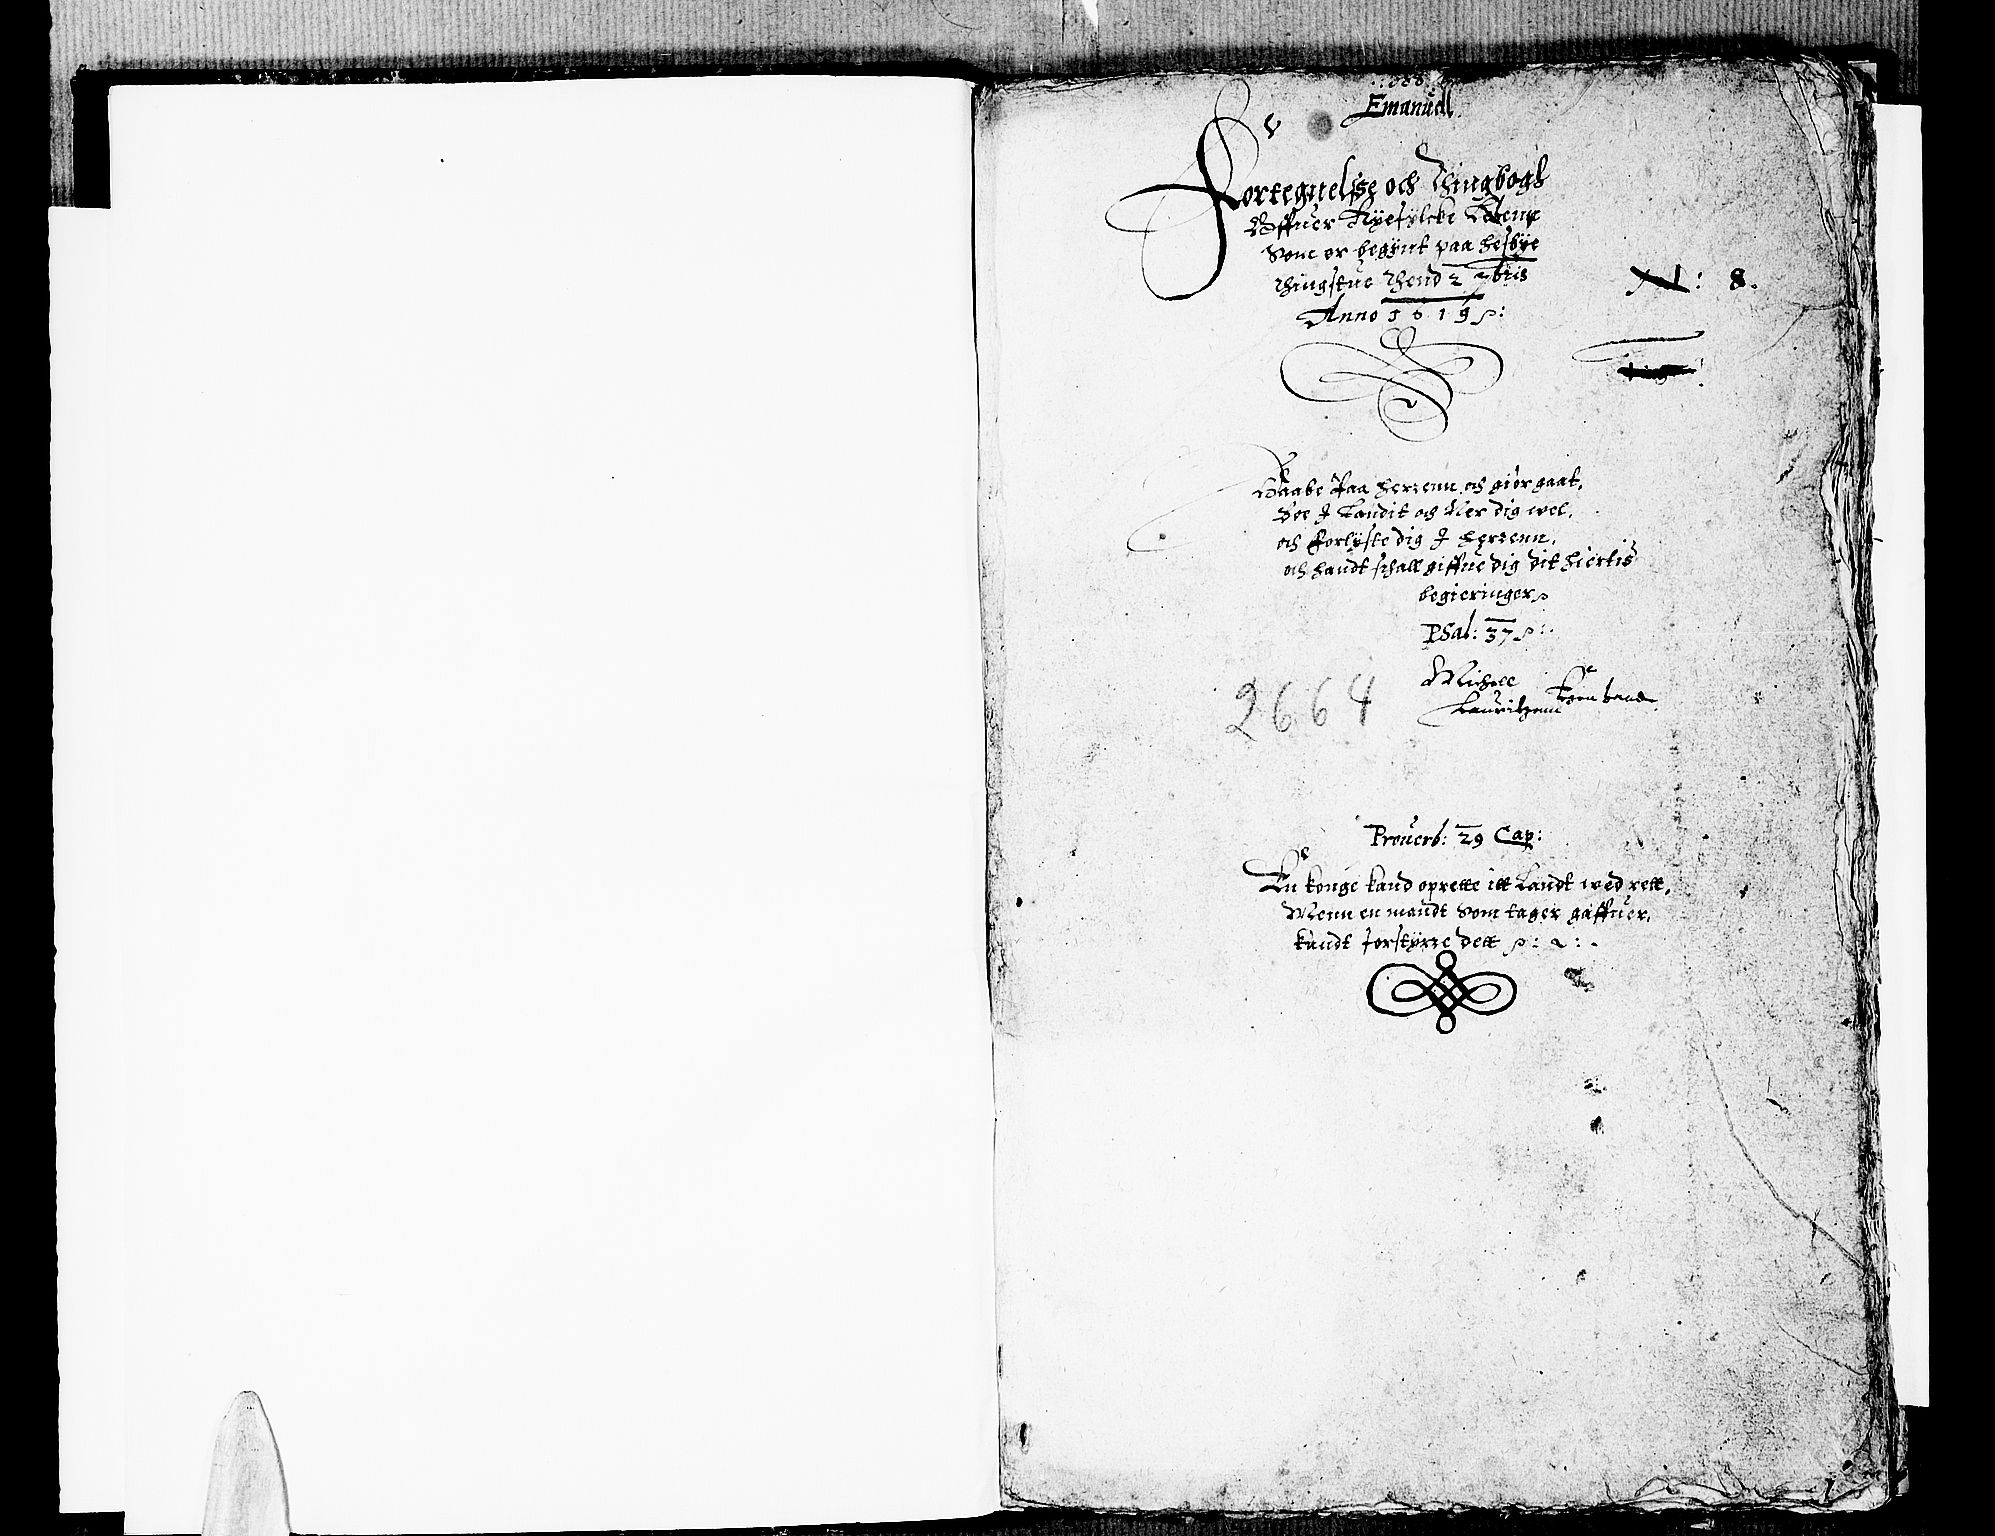 Emanuell
Fortegnelsse och Thingbogh
Offuer Ryefylcke Lehenn
Som er begynt paa Hesbye
Thingstue Thend 2 7bris
Anno 1619
N: 8.
Haabe Paa Herrenn och giør gaat,
Boe I Landit och Ner dig wel,
och Forlyste dig I Herrenn,
och handt schall giffue dig dit hiertis
begieringer
Psal: 37
Michell
Lauritzenn Egen handt
2664
Prouerb: 29 Cap:
En konge kand oprette itt Landt wed rett,
Menn en mandt Som tager gaffuer,
kandt forstyrre dett